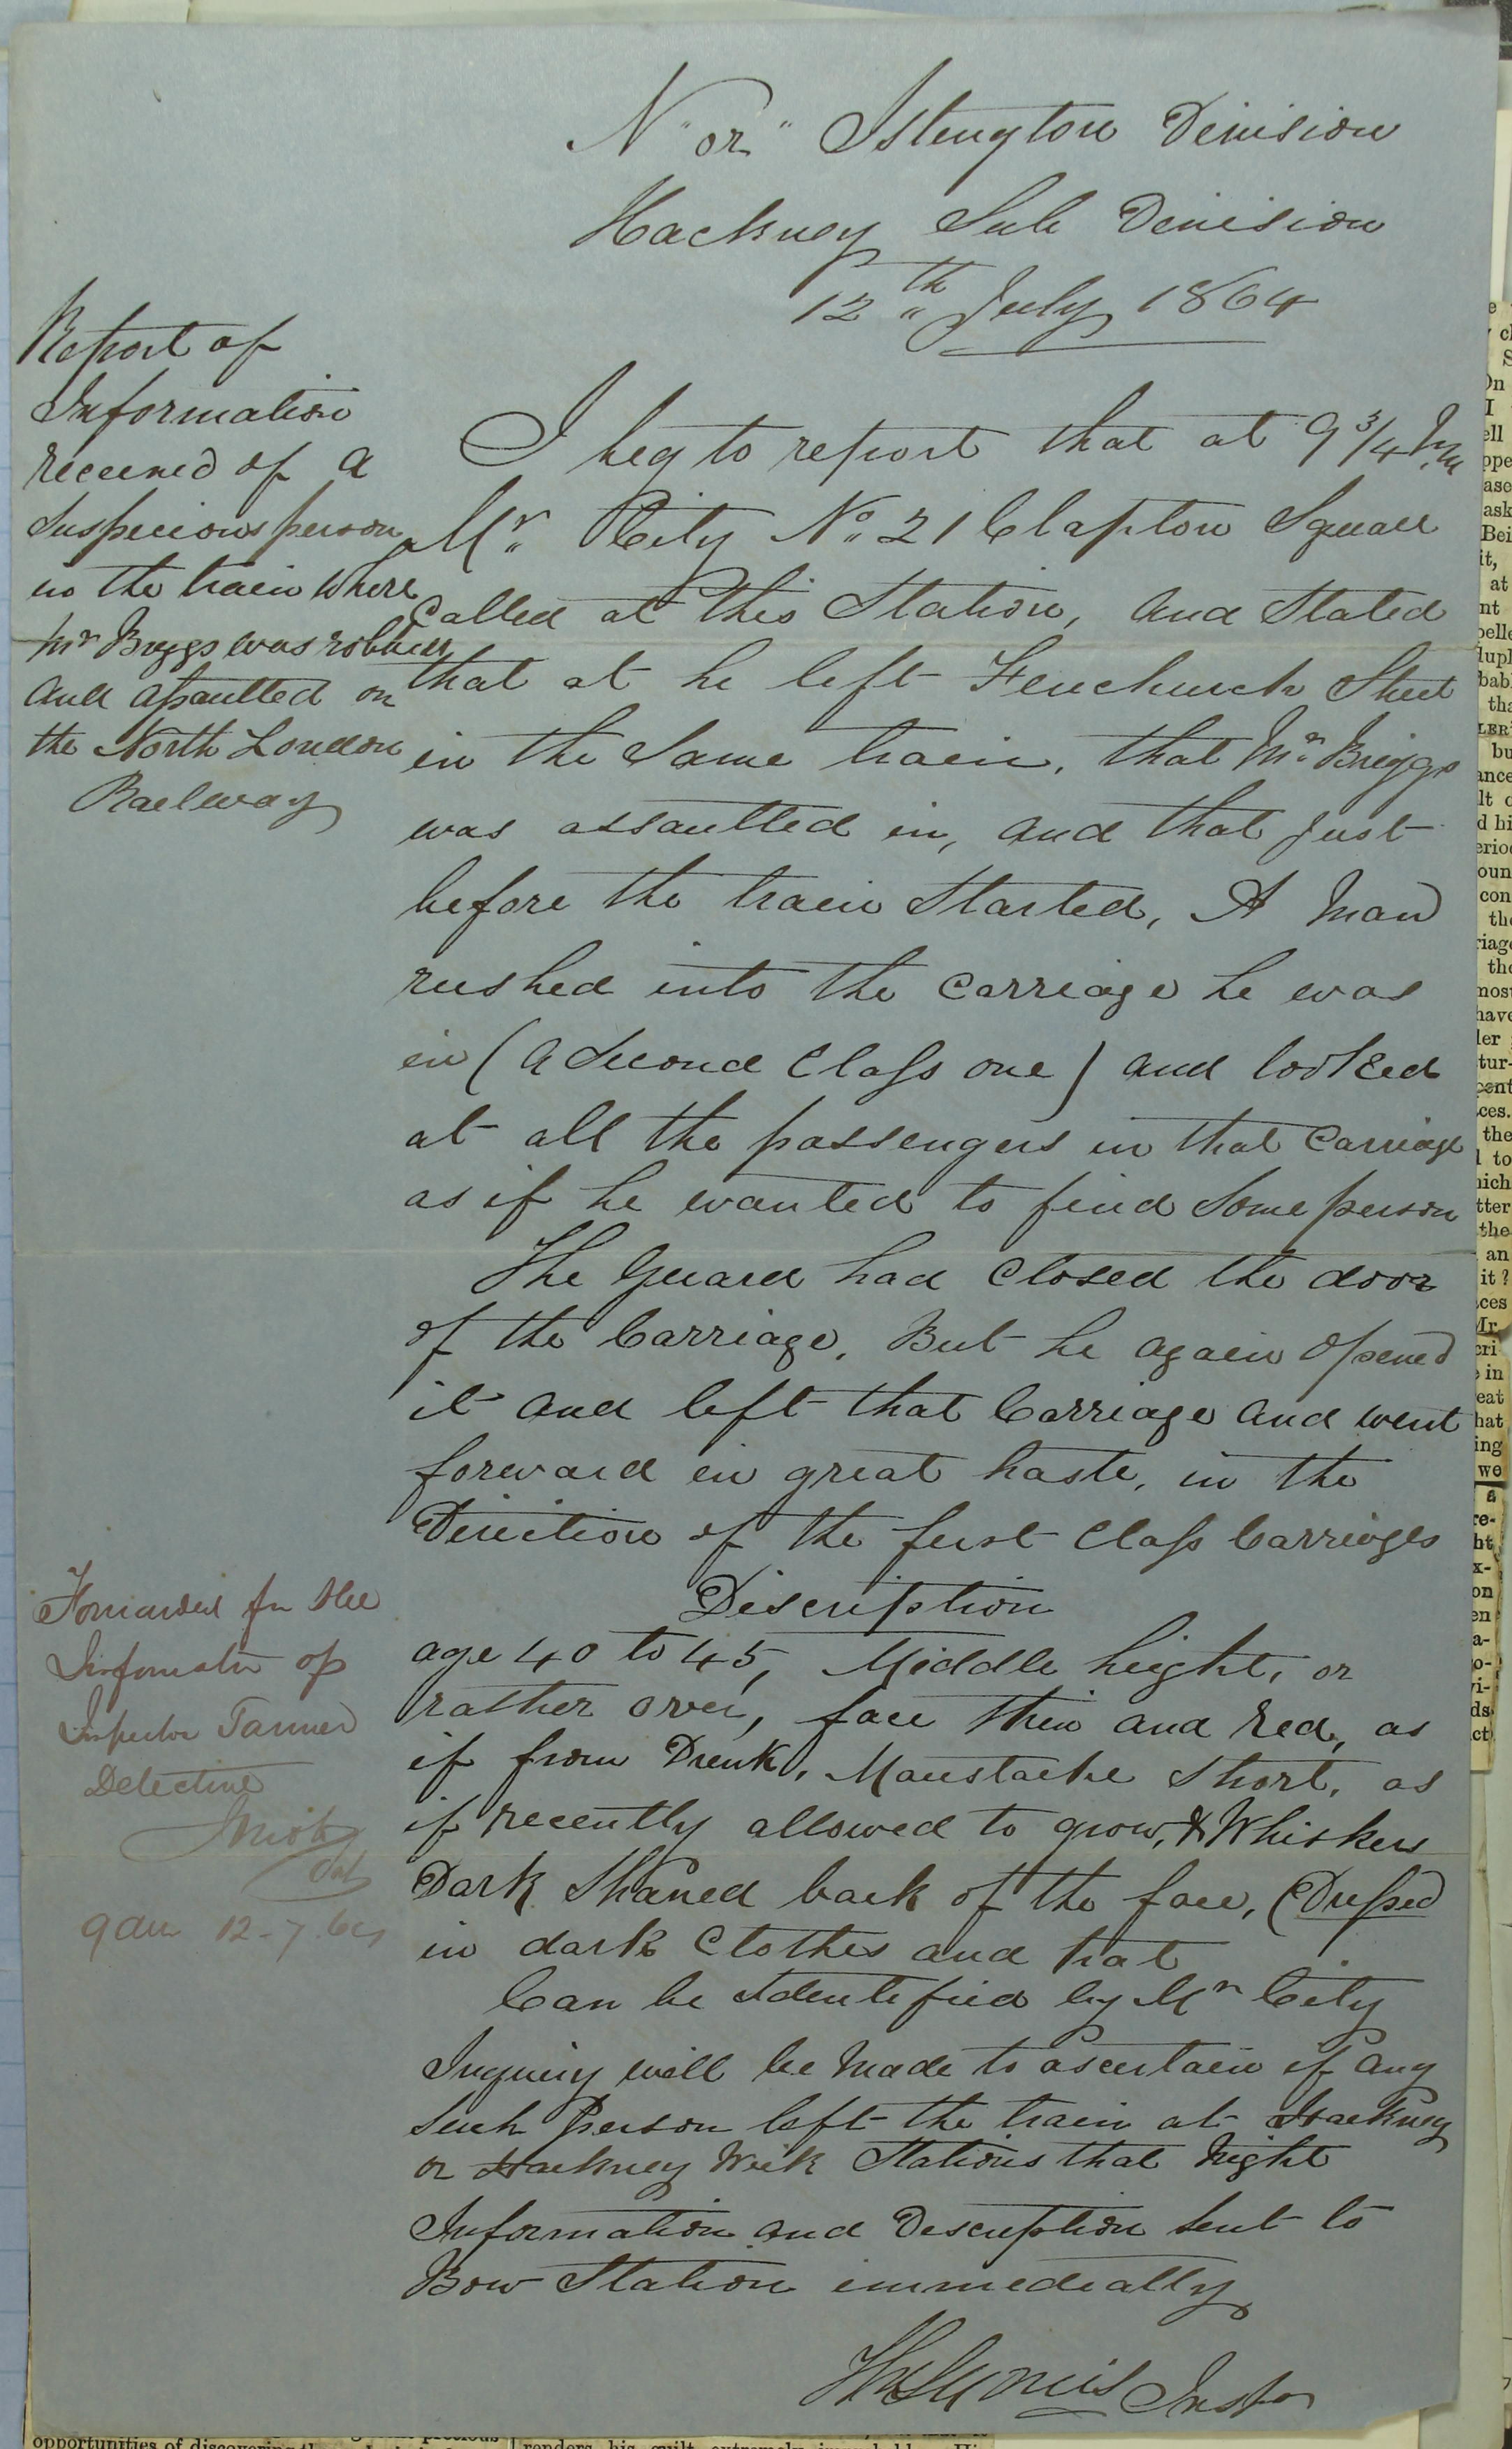 N "or" Islington Division
Hackney Sub Division
12th July 1864
Report of
Information
received of a
Suspecious person
in the train where
Mr Briggs was robbed
and assaulted on
the North London
Railway
I beg to report that at 9 3/4 p.m
Mr. City No. 21 Clapton Square
Called at this Station, and Stated
that at he left Fenchurch Street
in the Same train, that Mr. Briggs
was assaulted in, and that just
before the train Started, A Man
rushed into the Carriage he was
in (a Second Class one) and looked
at all the passengers in that Carriage
as if he wanted to find Some person
The Guard had Closed the door
of the Carriage, But he again opened
it and left that Carriage and went
forward in great haste, in the
Direction of the first Class Carriages
Discription
age 40 to 45, Middle height, or
rather over, face thin and red, as
if from Drink, Maustache Short, as
if recently allowed to grow, & Whiskers
Dark Shaved back of the face, (Dressed
in dark Clothes and hat
Can be Identified by Mr City
Inquiry will be Made to ascertain if any
Such Person left the train at Hackney
or Hackney Wick Stations that Night
Information and Description Sent to
Bow Station immediatly
Inspr
Forwarded for the
Information of
Inspector Tanner
Detective
9 am 12-7-64
opportunities of discovering